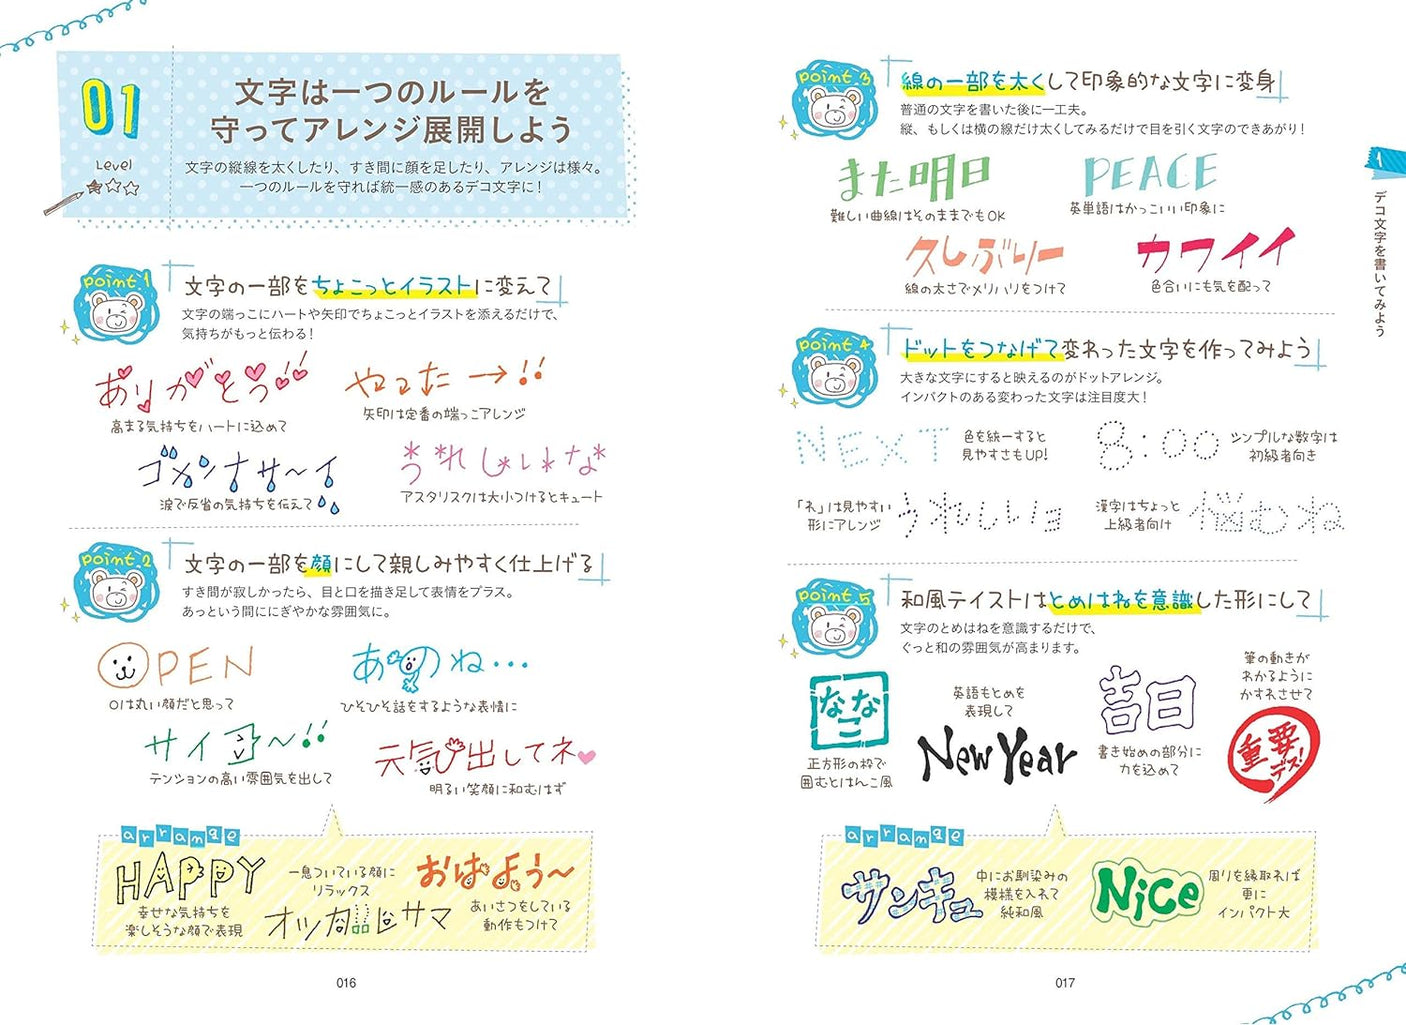 01
Level
文字は一つのルールを
守ってアレンジ展開しよう
文字の縦線を太くしたり、すき間に顔を足したり、アレンジは様々。
一つのルールを守れば統一感のあるデコ文字に!
point 1
文字の一部をちょこっとイラストに変えて
文字の端っこにハートや矢印でちょこっとイラストを添えるだけで、
気持ちがもっと伝わる!
ありがとう!!
高まる気持ちをハートに込めて
やった→!!
矢印は定番の端っこアレンジ
ゴメンナサ〜イ
涙で反省の気持ちを伝えて
うれしいな
アスタリスクは大小つけるとキュート
point 2
文字の一部を顔にして親しみやすく仕上げる
すき間が寂しかったら、目と口を描き足して表情をプラス。
あっという間ににぎやかな雰囲気に。
OPEN
Oは丸い顔だと思って
あのね…
ひそひそ話をするような表情に
サイコ〜!!
テンションの高い雰囲気を出して
元気出してネ
明るい笑顔に和むはず
arrange
HAPPY
幸せな気持ちを
楽しそうな顔で表現
一息ついている顔に
リラックス
オツカレサマ
おはよう〜
あいさつをしている
動作もつけて
016
point 3
線の一部を太くして印象的な文字に変身
普通の文字を書いた後に一工夫。
縦、もしくは横の線だけ太くしてみるだけで目を引く文字のできあがり!
また明日
難しい曲線はそのままでもOK
PEACE
英単語はかっこいい印象に
久しぶりー
線の太さでメリハリをつけて
カワイイ
色合いにも気を配って
1
デコ文字を書いてみよう
point 4
ドットをつなげて変わった文字を作ってみよう
大きな文字にすると映えるのがドットアレンジ。
インパクトのある変わった文字は注目度大!
NEXT
色を統一すると
見やすさもUP!
8:00
シンプルな数字は
初級者向き
「ネ」は見やすい
形にアレンジ
うれしいヨ
漢字はちょっと
上級者向け
悩むね
point 5
和風テイストはとめはねを意識した形にして
文字のとめはねを意識するだけで、
ぐっと和の雰囲気が高まります。
ななこ
正方形の枠で
囲むとはんこ風
英語もとめを
表現して
New Year
吉日
書き始めの部分に
力を込めて
筆の動きが
わかるように
かすれさせて
重要
デス!
arrange
サンキュ
中にお馴染みの
模様を入れて
純和風
NiCe
周りを縁取れば
更に
インパクト大
017